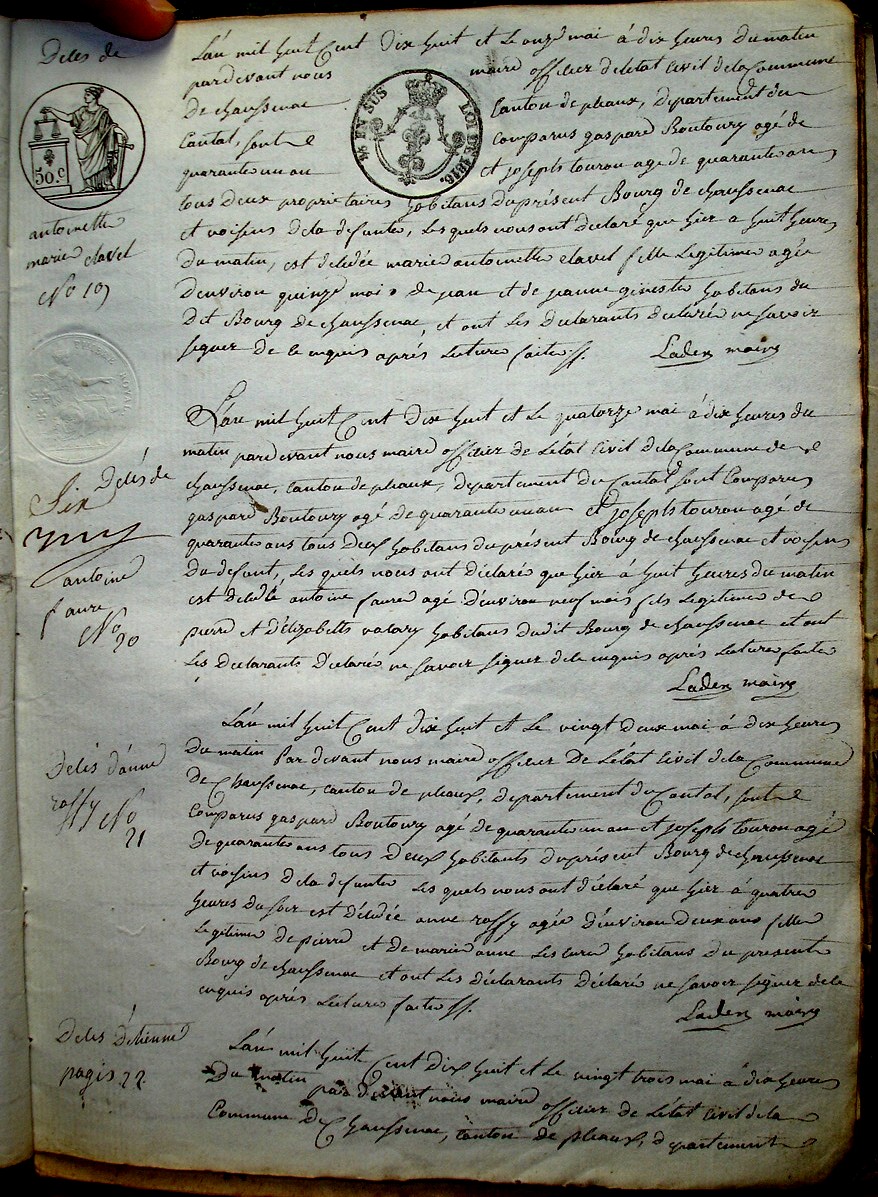 Deles de
50.c
antoinette
marie clavel
No 19
L'an mil huit Cent Dix huit et Le onze mai à dix heures du matin
pardevant nous maire officier deletat Civil delaCommune
De chaussenac Canton de pleaux, Departement du
Cantal, sont Comparus gaspard Boutoury agé de
quarante un an et joseph touron age de quarante ans
tous Deux proprietaires habitans du présent Bourg de chaussenac
et voisins dela defunte, Les quels nous ont déclaré que hier a huit heures
Du matin, est décédée marie antoinette clavel fille Legitime agée
d'environ quinze mois De jean et de jeanne ginestes habitans du
Dit Bourg De chaussenac, et ont Les Déclarants déclaré ne savoir
signer De ce enquis après Lecture faite ff. Laden maire
% EN SUS LOI DE 1816.
L'an mil huit Cent Dix huit et Le quatorze mai à dix heures du
matin pardevant nous maire officier de L'état Civil delaCommune de
chaussenac, Canton de pleaux, departement du Cantal sont Comparus
gaspard Boutoury agé De quarante un an et joseph touron agé de
quarante ans tous Deux habitans du présent Bourg de chaussenac et voisins
Du defunt, Les quels nous ont déclaré que hier à huit heures du matin
est décédé antoine faure agé d'environ neuf mois fils Legitime de
pierre et d'élizabeth valary habitans dudit Bourg de chaussenac et ont
Les Declarants Déclaré ne savoir signer dece enquis après Lecture faite
Laden maire
Décès de
Six
antoine
faure
No 20
L'an mil huit Cent dix huit et Le vingt deux mai à dix heures
Du matin Par devant nous maire officier De L'état Civil dela Commune
De Chaussenac, canton de pleaux, departement du Cantal, sont
Comparus gaspard Boutoury agé de quarante un an et joseph touron agé
De quarante ans tous Deux habitants du présent Bourg de chaussenac
et voisins Dela defunte Les quels nous ont déclaré que hier à quatre
heures Du soir est décédée anne raffy agée d'environ deux ans fille
Legitime De pierre et De marie anne habitans du present
Bourg de chaussenac et ont Les déclarants déclaré ne savoir signer dece
enquis après Lecture faite ff.
Laden maire
Décès d'anne
raffy No
21
Deces D'etienne
pagis 22
L'an mil huit Cent dix huit et Le vingt trois mai à dix heures
Du matin par devant nous maire officier de L'état Civil dela
Commune De Chaussenac, canton de pleaux, departement